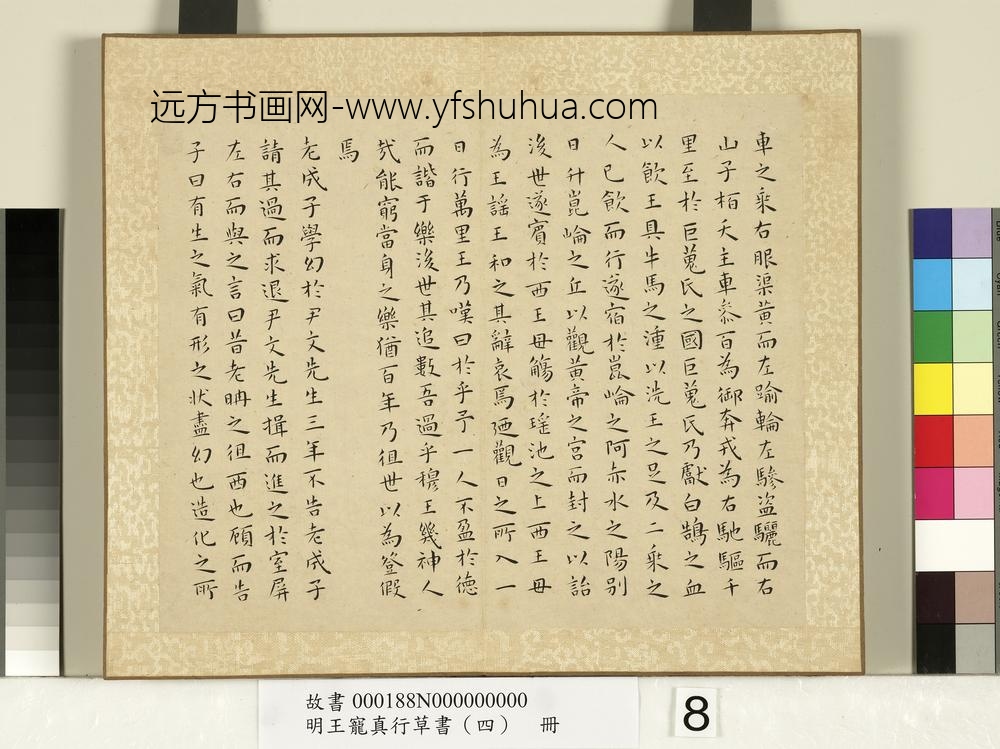 远方书画网-www.yfshuhua.com
車之乘右服渠黃而左踰輪左驂盜驪而右
山子栢夭主車叅百為御奔戎為右馳驅千
里至於巨蒐氏之國巨蒐氏乃獻白鵠之血
以飲王具牛馬之湩以洗王之足及二乘之
人已飲而行遂宿於崑崘之阿赤水之陽别
日升崑崘之丘以觀黃帝之宮而封之以詒
後世遂賓於西王母觴於瑤池之上西王母
為王謡王和之其辭哀焉廼觀日之所入一
日行萬里王乃嘆曰於乎予一人不盈於德
而諧于樂後世其追數吾過乎穆王幾神人
㢤能窮當身之樂猶百年乃徂世以為登假
焉
老成子學幻於尹文先生三年不告老成子
請其過而求退尹文先生揖而進之於室屏
左右而與之言曰昔老聃之徂西也顧而告
子曰有生之氣有形之状盡幻也造化之所
故書 000188N000000000
明王寵真行草書（四） 冊
8